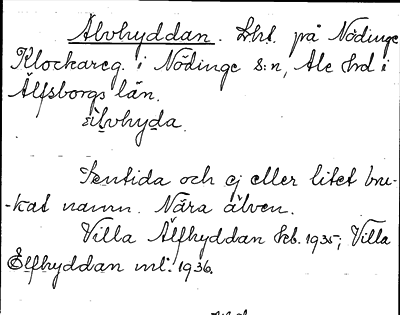 Älvhyddan. Lht. på Nödinge
Klockareg. i Nödinge s:n, Ale hrd i
Älfsborgs län.
älvhyda.
Sentida och ej eller litet bru-
-kat namn. Nära älven.
Villa Älfhyddan Feb. 1935; Villa
Elfhyddan ml. 1936.